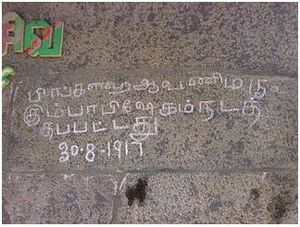 சிவ
பிங்களஹ ஆவணிமீ 15
கும்பாபிஷேகம் நடத்
தப்பட்டது
30-8-1917